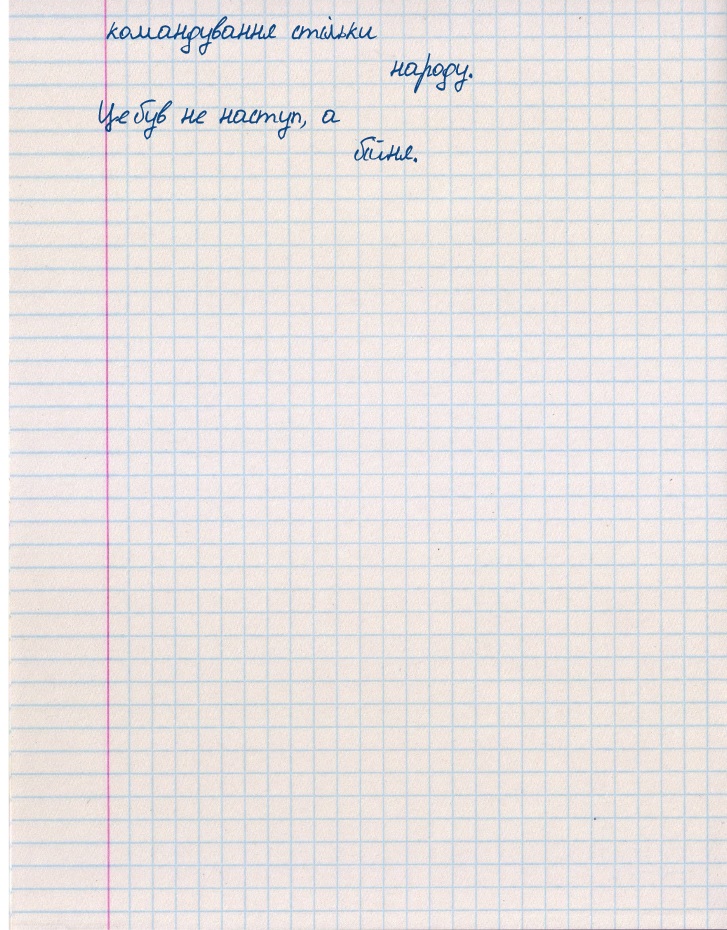 командування стільки
народу.
Це був не наступ, а
бійня.